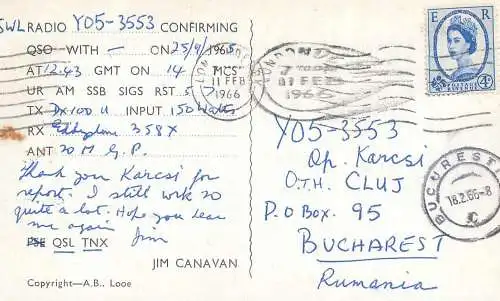 SWL RADIO YO5-3553 CONFIRMING
QSO WITH - ON 25/9/1965
AT 12.43 GMT ON 14 MCS
UR AM SSB SIGS RST 5 7
TX DX100 U INPUT 150 Watts
RX Eddystone 358X
ANT 20 M G.P.
Thank you Karcsi for
report. I still work 20
quite a lot. Hope you hear
me again Jim
PSE QSL TNX
JIM CANAVAN
Copyright—A.B., Looe
LONDON
11 FEB
1966
LONDON
11 FEB
1966
E R
POSTAGE REVENUE
4D
YO5-3553
Op. Karcsi
O.T.H. CLUJ
P.O BOX. 95
BUCHAREST
Rumania
BUCURESTI
18.2.66-8